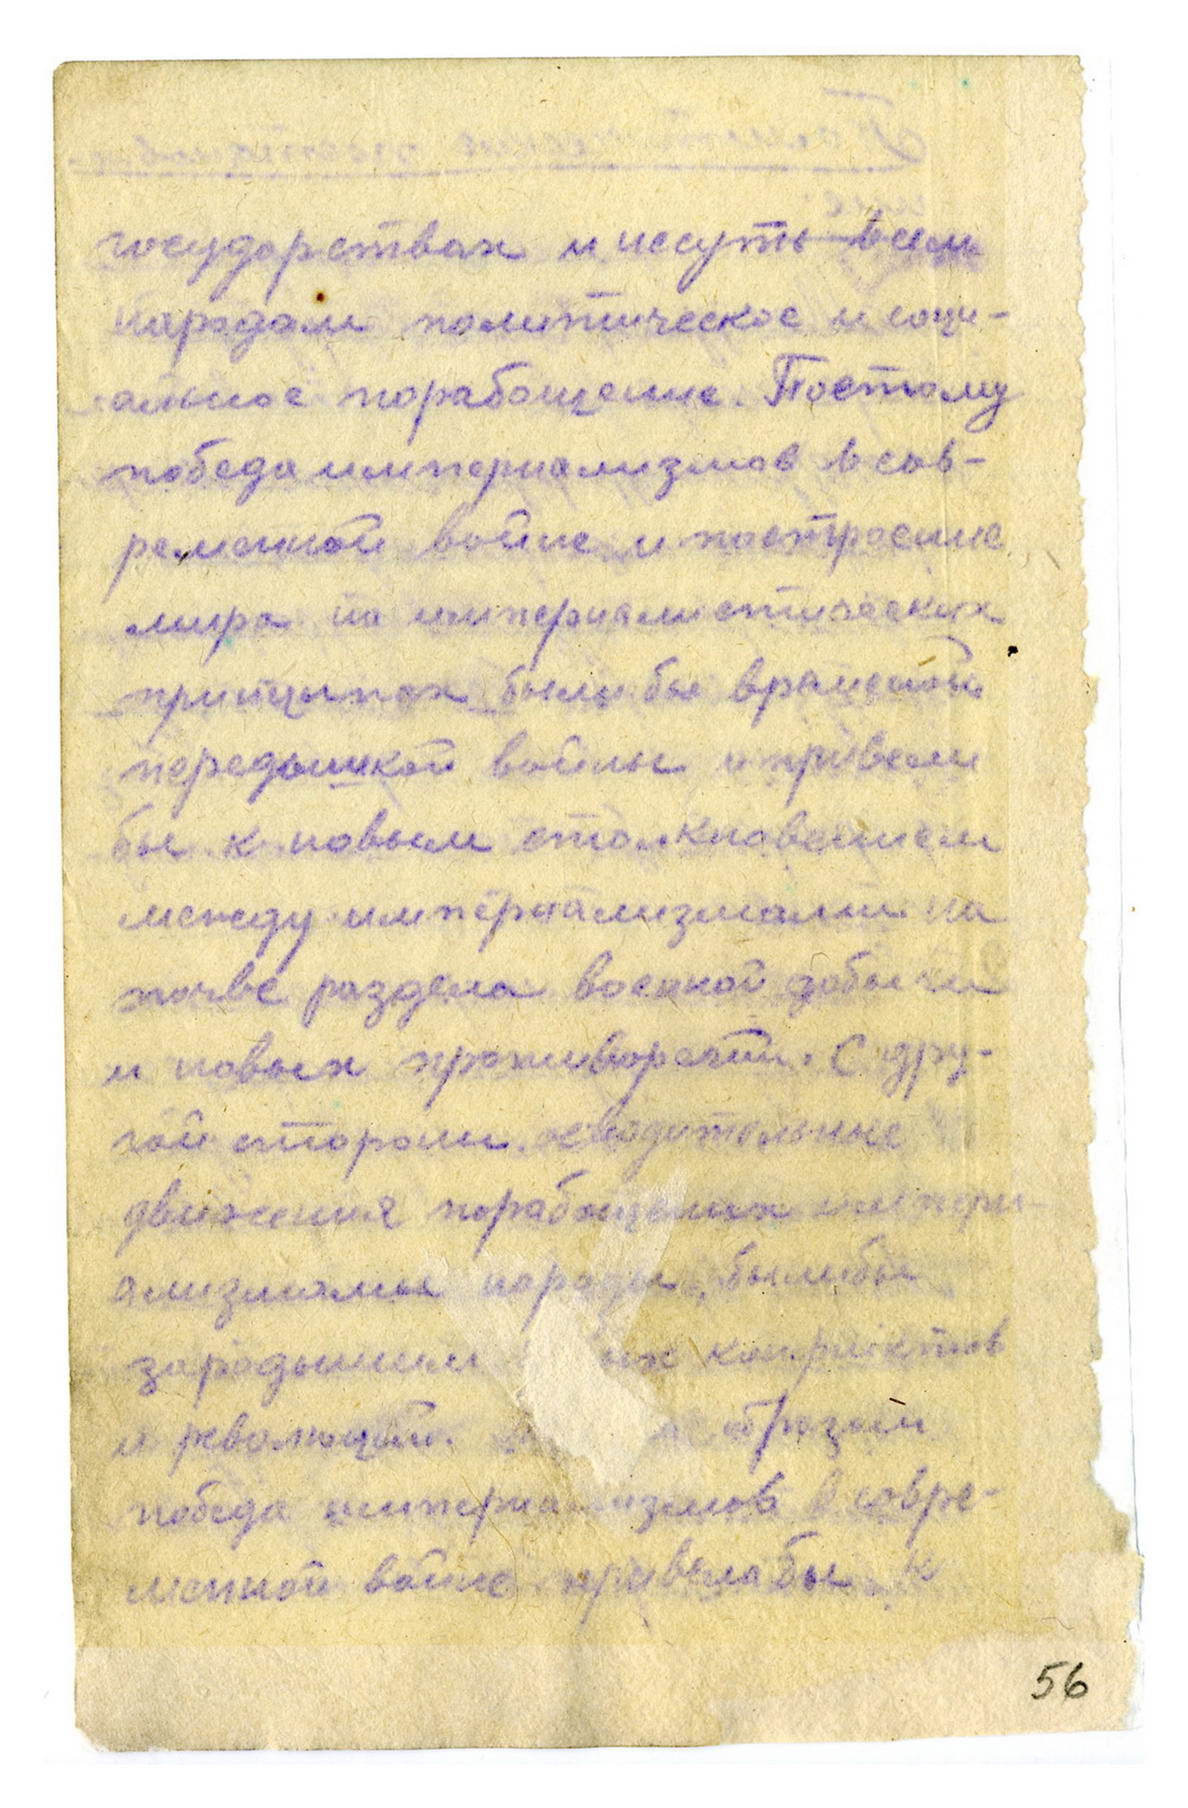 государствах и несуть всем
народам политическое и соци-
альное порабощение. Поетому
победа империализмов в сов-
ременной войне и построение
мира на империалистических
принцыпах были бы временой
передышкой войны и привели
бы к новым столкновением
между империализмами на
почве раздела военной добычи
и новых противоречий. С дру-
гой стороны
движения порабощеных импери-
ализмамы народы, былибы
зародышим конфликтов
и революций. образом
победа империализмов в совре-
менной войне привелабы к
56